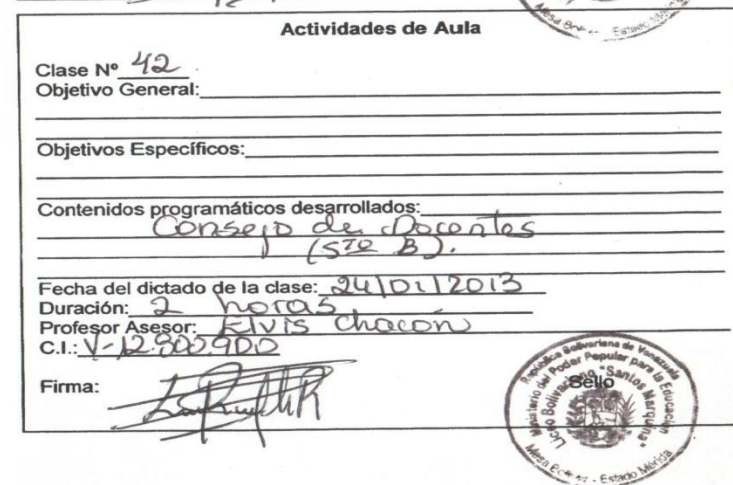 Mesa Bolívar - Estado Mérida
Actividades de Aula
Clase Nº 42
Objetivo General:
Objetivos Específicos:
Contenidos programáticos desarrollados:
Consejo de Docentes
(5to B).
Fecha del dictado de la clase: 24/01/2013
Duración: 2 horas
Profesor Asesor: Elvis Chacón
C.I.: V-12.800.900
Firma:
Sello
República Bolivariana de Venezuela
Ministerio del Poder Popular para la Educación
Liceo Bolivariano "Santos Marquina"
Mesa Bolívar - Estado Mérida